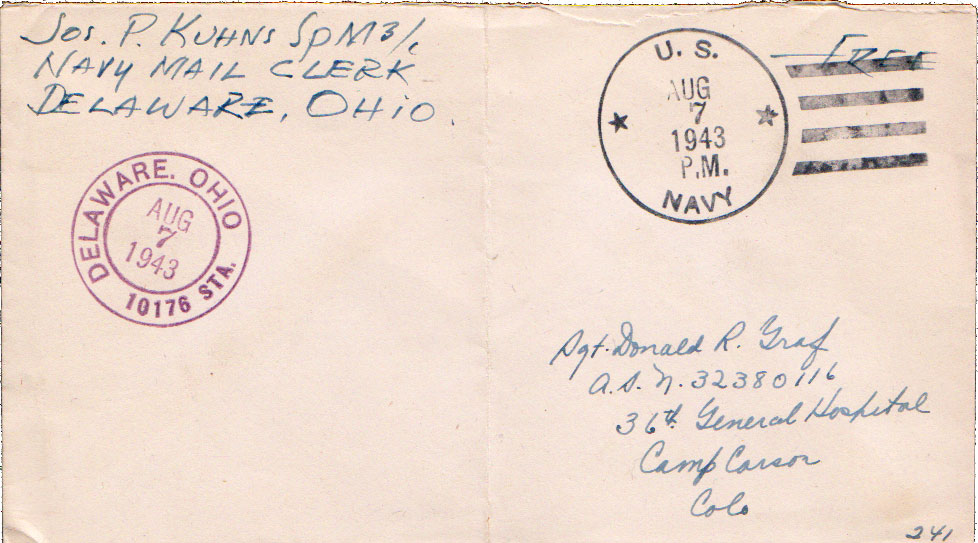 Jos. P. Kuhns SpM3/c
Navy Mail Clerk
Delaware, Ohio.
Free
U. S.
AUG
7
1943
P.M.
NAVY
DELAWARE, OHIO
AUG
7
1943
10176 STA.
Sgt. Donald R. Graf
A.S.N. 32380116
36th General Hospital
Camp Carson
Colo
241